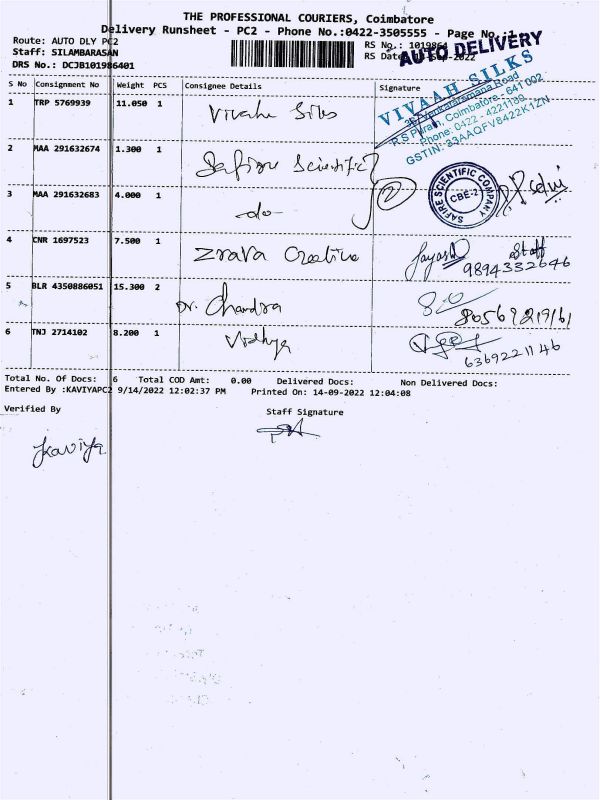 THE PROFESSIONAL COURIERS, Coimbatore
Delivery Runsheet - PC2 - Phone No.:0422-3505555 - Page No.:1
Route: AUTO DLY PC2
RS No.: 1019864
AUTO DELIVERY
Staff: SILAMBARASAN
RS Date
Sep-2022
DRS No.: DCJB101986401
S No Consignment No Weight PCS Consignee Details Signature
VIVAAH SILKS
R.S Puram, Coimbatore - 641 002
Phone: 0422 - 4221189
GSTIN: 33AAQFV8422K1ZN
1 TRP 5769939 11.050 1 Vivahe Silks
2 MAA 291632674 1.300 1 Safire Scientific
SAFIRE SCIENTIFIC COMPANY
CBE-2
3 MAA 291632683 4.000 1 -do-
4 CNR 1697523 7.500 1 Zrava Creative
Staff
9894332646
5 BLR 4350886051 15.300 2 Dr. Chandra
8056921961
6 TNJ 2714102 8.200 1 Vidhya
6369221146
Total No. Of Docs: 6 Total COD Amt: 0.00 Delivered Docs: Non Delivered Docs:
Entered By :KAVIYAPC2 9/14/2022 12:02:37 PM Printed On: 14-09-2022 12:04:08
Verified By Staff Signature
Kaviya